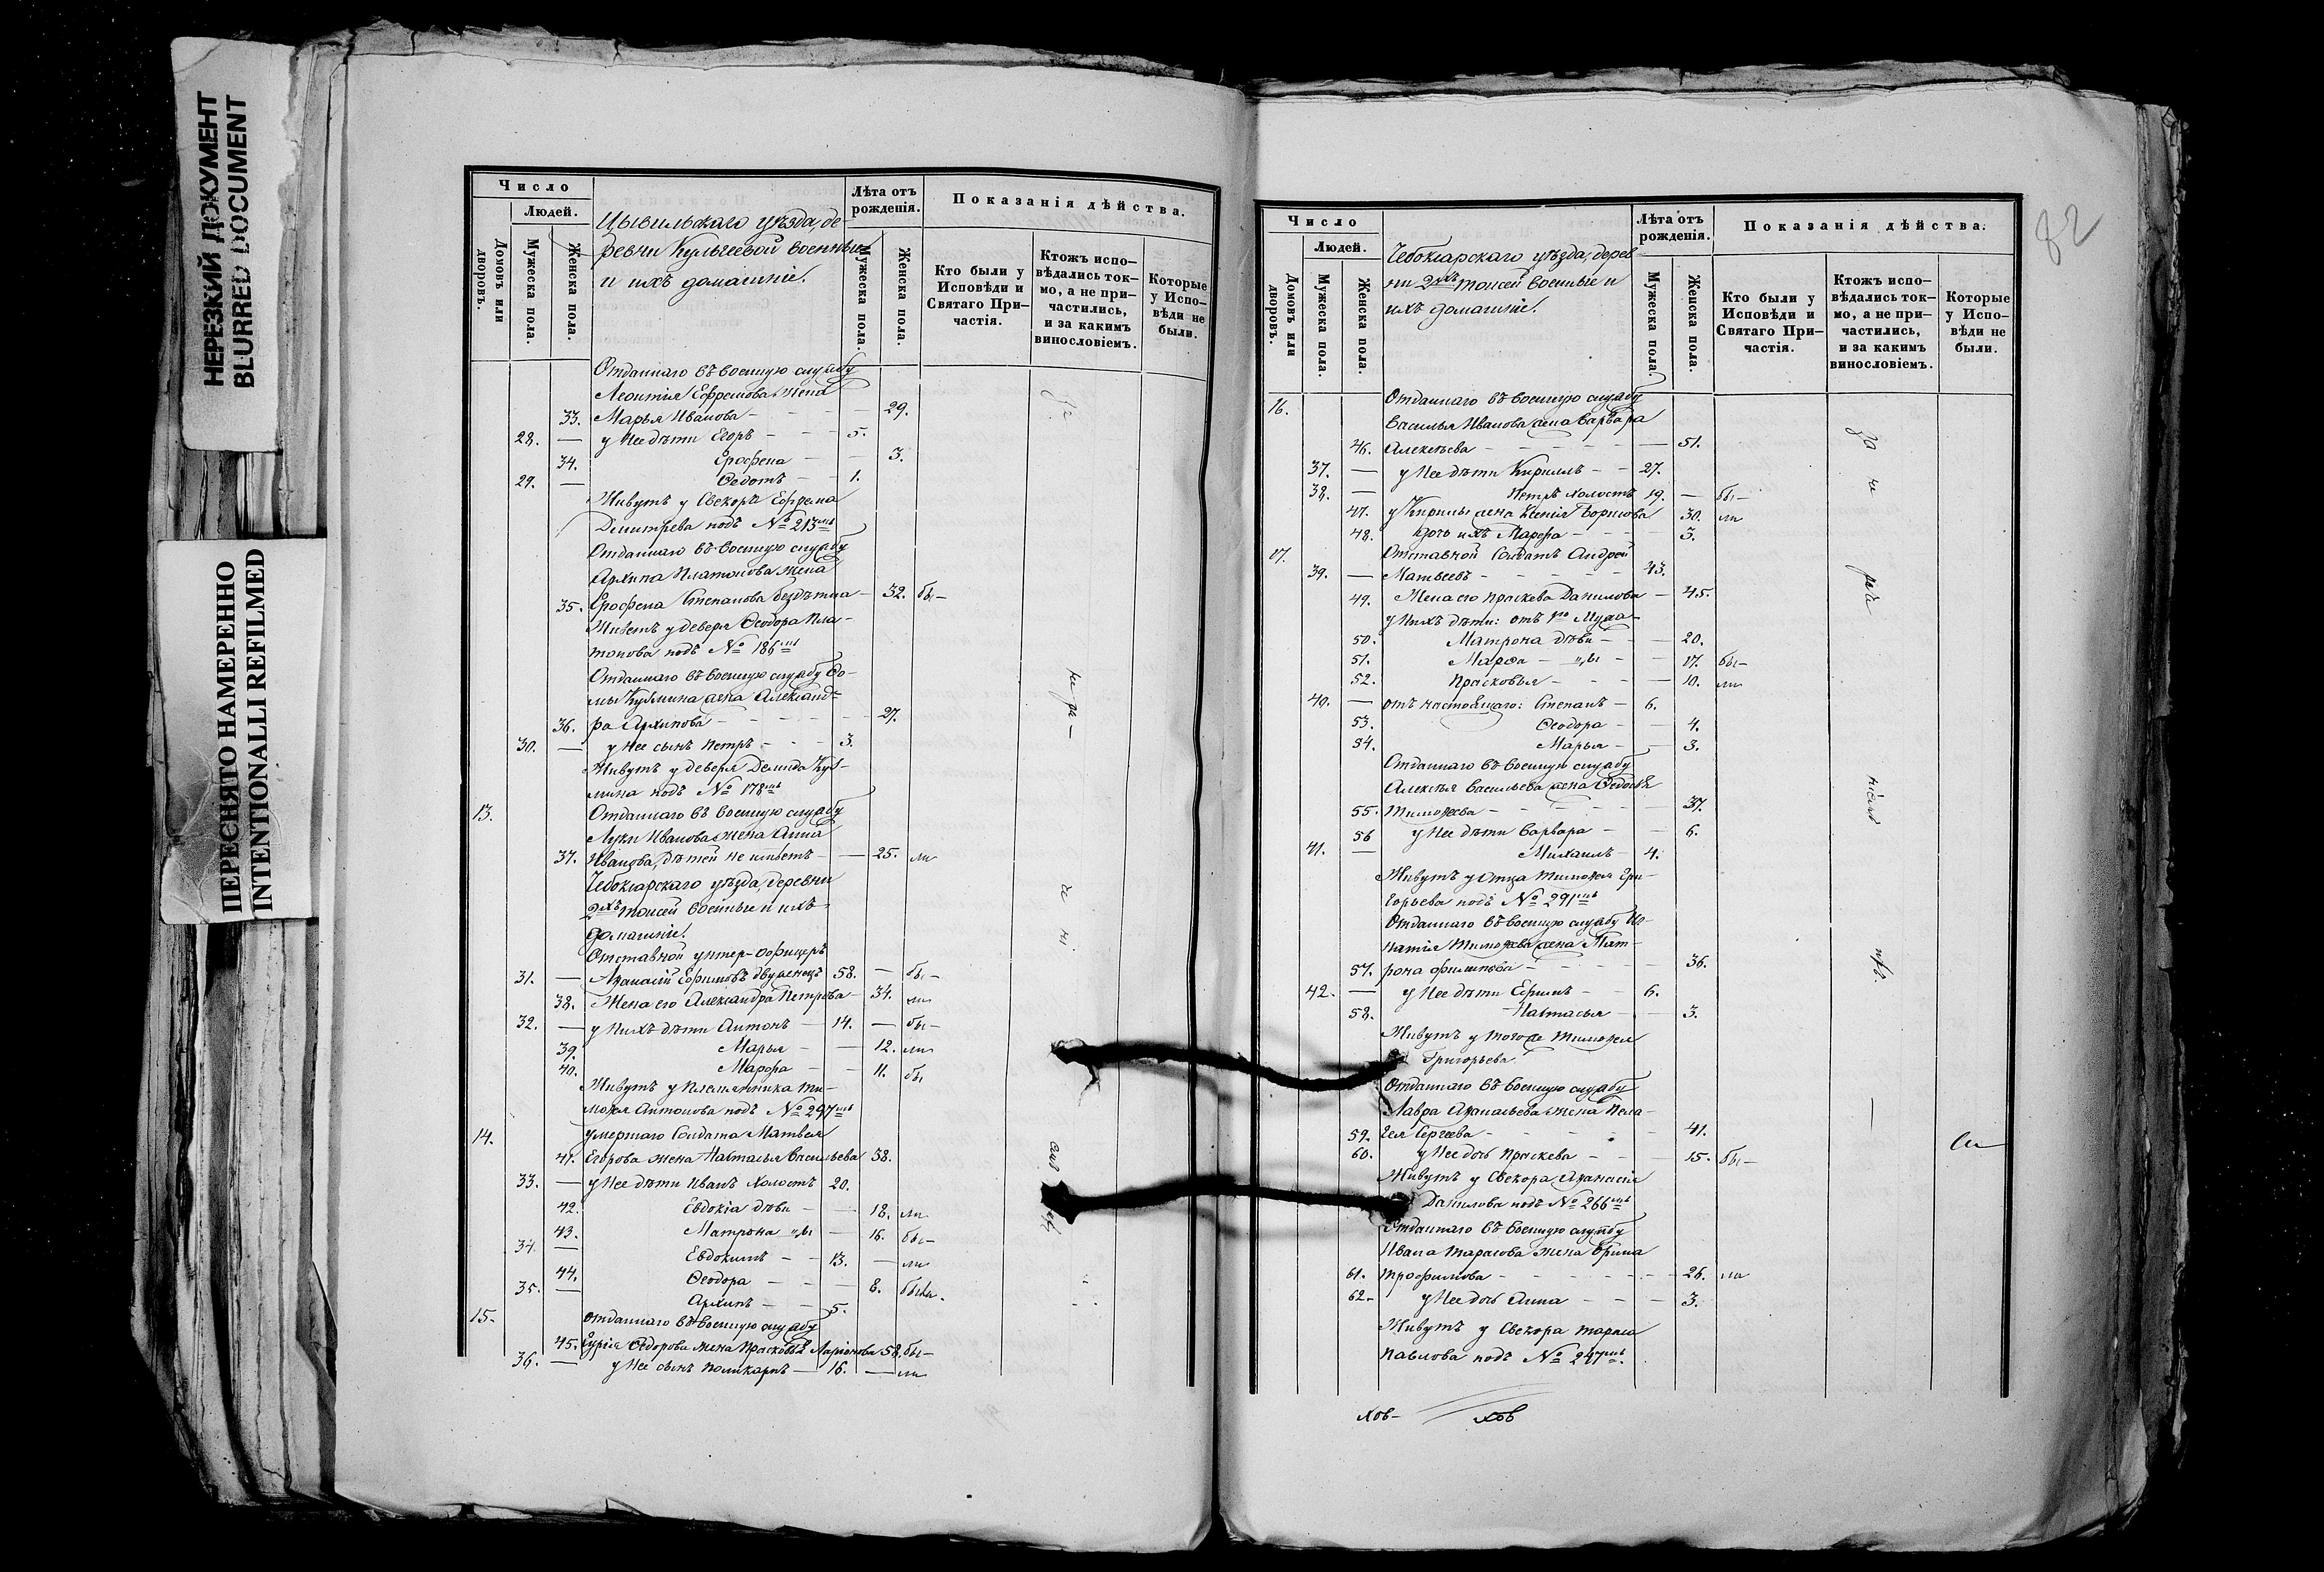 НЕРЕЗКИЙ ДОКУМЕНТ
BLURRED DOCUMENT
ПЕРЕСНЯТО НАМЕРЕННО
INTENTIONALLI REFILMED
Число
Людей.
Домовъ или дворовъ.
Мужеска пола.
Женска пола.
Цывильскаго уѣзда, де-
ревни Кульгеевой военные
и ихъ домашніе.
Лѣта отъ рожденія.
Мужеска пола.
Женска пола.
Показанія дѣйства.
Кто были у Исповѣди и Святаго Причастія.
Ктожъ исповѣдались токмо, а не причастились, и за какимъ винословіемъ.
Которые у Исповѣди не были.
Отданнаго въ военную службу
Леонтія Ефремова жена
33. Марья Иванова - 29.
28. — у Нее дѣти Егоръ - 5.
34. - 3.
29. — Ѳедотъ - 1.
Живутъ у Свекора Ефрема
Дмитрева подъ № 213мъ
Отданнаго въ военную службу
Архипа Платонова жена
35. Степанова бездѣтна - 32. бы-
Живетъ у деверя Ѳеодора Пла-
тонова подъ № 186мъ
Отданнаго въ военную службу Ѳо-
мы Кузмина жена Александ-
36. ра Архипова - 27.
30. — у Нее сынъ Петръ - 3.
Живутъ у деверя Демида Куз-
мина подъ № 178мъ
13. Отданнаго въ военную службу
Луки Иванова жена Анна
37. Иванова, дѣтей не имѣетъ - 25. ли
Чебоксарскаго уѣзда, деревни
2хъ Тоисей военные и ихъ
домашніе.
Отставной унтер-офицеръ
31. — Аѳанасій Ефимовъ двуженецъ 58. — бы-
38. Жена его Александра Петрова - 34. ли
32. — у Нихъ дѣти Антонъ - 14. — бы-
39. Марья - 12. ли
40. Марфа - 11. бы
Живутъ у племянника Ти-
моѳея Антонова подъ № 297мъ
14. умершаго Солдата Матвея
41. Егорова жена Настасья Васильева 58.
33. — у Нее дѣти Иванъ холостъ 20.
42. Евдокія дѣви - 18. ли
43. Матрона - 16. бы-
34. — Евдокимъ - 13. — ли
44. Ѳеодора - 8. были.
35. — Архипъ - 5.
15. Отданнаго въ военную службу
45. Гурія Ѳедорова жена Прасковья Ларіонова 58. бы-
36. — у Нее сынъ Поликарпъ - 16. — ли
82
Число
Людей.
Домовъ или дворовъ.
Мужеска пола.
Женска пола.
Чебоксарскаго уѣзда, дерев-
ни 2хъ Тоисей военные и
ихъ домашніе.
Лѣта отъ рожденія.
Мужеска пола.
Женска пола.
Показанія дѣйства.
Кто были у Исповѣди и Святаго Причастія.
Ктожъ исповѣдались токмо, а не причастились, и за какимъ винословіемъ.
Которые у Исповѣди не были.
16. Отданнаго въ военную службу
Василья Иванова жена Варвара
46. Алексѣева - 51.
37. — у Нее дѣти Кириллъ - 27.
38. — Петръ холостъ 19. — бы-
47. у Кирилы жена Ксенія Борисова 30. ли
48. дочь ихъ Марфа - 3.
17. Отставной Солдатъ Андрей
39. — Матвеевъ - 43.
49. Жена его Праскева Данилова - 45.
у Нихъ дѣти: отъ 1го Мужа-
50. Матрона дѣви - 20.
51. Марфа - 17. бы-
52. Прасковья - 10. ли
40. — отъ настоящаго: Степанъ - 6.
53. Ѳеодора - 4.
54. Марья - 3.
Отданнаго въ военную службу
Алексѣя Васильева жена Ѳедосья
55. Тимоѳеева - 37.
56 у Нее дѣти Варвара - 6.
41. — Михаилъ - 4.
Живутъ у Отца Тимоѳея Гри-
горьева подъ № 291мъ
Отданнаго въ военную службу Иг-
натія Тимоѳеева жена Мат-
57. рона Филипова - 36.
42. — у Нее дѣти Ефимъ - 6.
58. Настасья - 3.
Живутъ у тогоже Тимоѳея
Григорьева
Отданнаго въ военную службу
Лавра Аѳанасьева жена Пела-
59. гея Сергеева - 41.
60. у Нее дочь Праскева - 15. бы-
Живутъ у Свекора Аѳанасія
Данилова подъ № 266мъ
Отданнаго въ военную службу
Ивана Тарасова жена Ирина
61. Трофимова - 26. ла
62. у Нее дочь Анна - 3.
Живутъ у Свекора Тараса
Павлова подъ № 247мъ.
за не ра че ніемъ